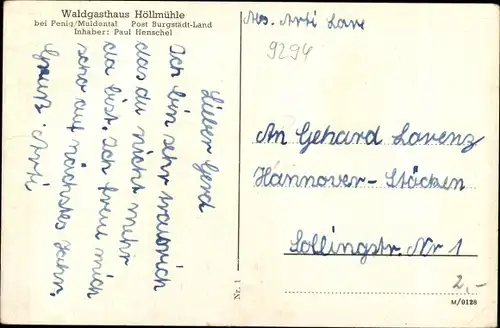 Waldgasthaus Höllmühle
bei Penig/Muldental Post Burgstädt-Land
Inhaber: Paul Henschel
Lieber Gerd
Ich bin sehr traurich
das du nicht mehr
da bist. Ich freu mich
scho auf nächstes Jahr.
Gruß. Arti
Abs. Arti Lore
9294
An Gehard Lorenz
Hannover-Stöcken
Sollingstr. Nr 1
2,-
Nr. 1
M/0128